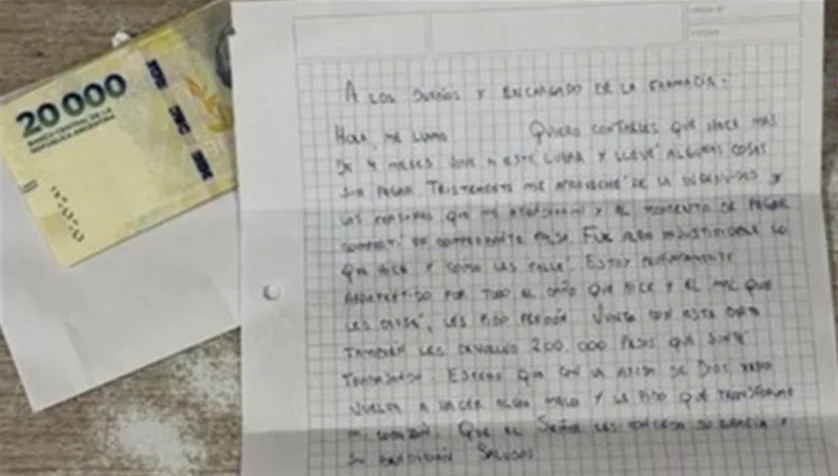 20 000
BANCO CENTRAL DE LA
REPÚBLICA ARGENTINA
A LOS DUEÑOS Y ENCARGADO DE LA FARMACIA:
HOLA, ME LLAMO QUIERO CONTARLES QUE HACE MAS
DE 4 MESES VINE A ESTE LUGAR Y LLEVÉ ALGUNAS COSAS
SIN PAGAR. TRISTEMENTE ME APROVECHÉ DE LA INGENUIDAD Y
LAS PERSONAS QUE ME ATENDIERON Y AL MOMENTO DE PAGAR
COMPARTÍ UN COMPROBANTE FALSO. FUE ALGO INJUSTIFICABLE LO
QUE HICE Y COMO LES FALLÉ. ESTOY PROFUNDAMENTE
ARREPENTIDO POR TODO EL DAÑO QUE HICE Y EL MAL QUE
LES CAUSÉ, LES PIDO PERDÓN. JUNTO CON ESTA CARTA
TAMBIÉN LES DEVUELVO 200.000 PESOS QUE JUNTÉ
TRABAJANDO. ESPERO QUE CON LA AYUDA DE DIOS NADIE
VUELVA A HACER ALGO MALO Y LE PIDO QUE TRANSFORME
MI CORAZÓN. QUE EL SEÑOR LES CONCEDA SU GRACIA Y
SU BENDICIÓN. SALUDOS